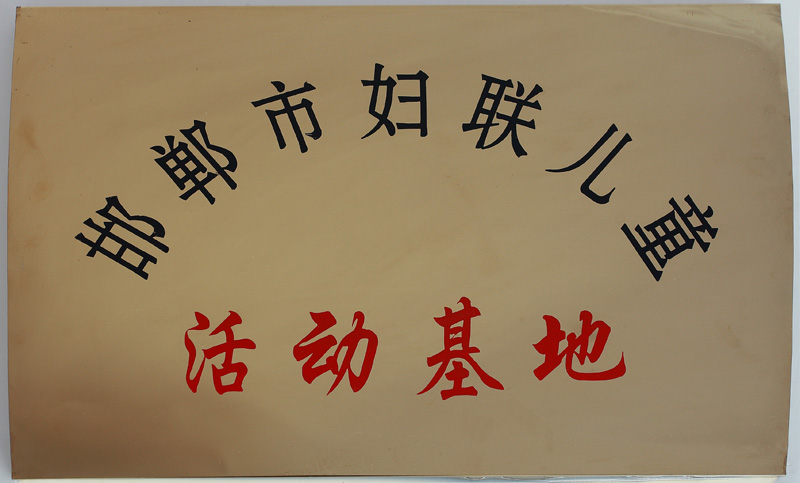 邯郸市妇联儿童
活动基地